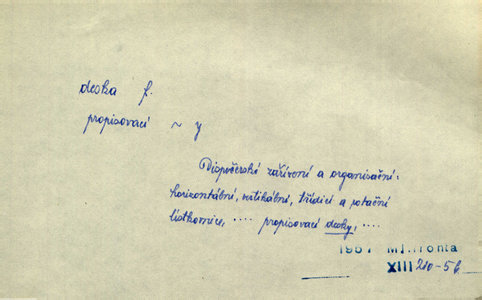 deska f.
propisovací ~ y
Dispečerské zařízení a organisační:
horizontální, vertikální, třídicí a rotační
lístkovnice, .... propisovací desky, ....
1957 Ml. fronta
XIII 210-56